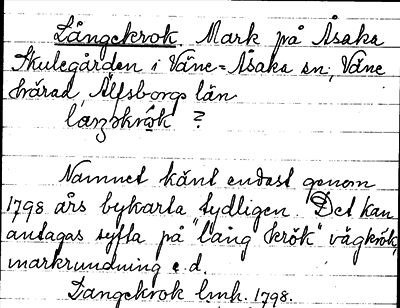 Långekrok. Mark på Åsaka
Skulegården i Väne-Åsaka sn, Väne
härad, Älfsborgs län
?
Namnet känt endast genom
1798 års bykarta tydligen. Det kan
antagas syfta på "lång krök" vägkrök,
markrundning e.d.
Langekrok lmh. 1798.